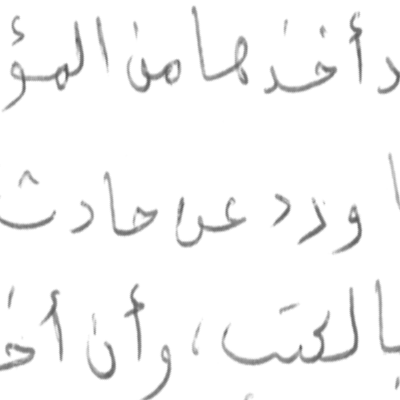 د أخذها من المؤ
ا ورد عن حادث
بالكتب، وأن أخ